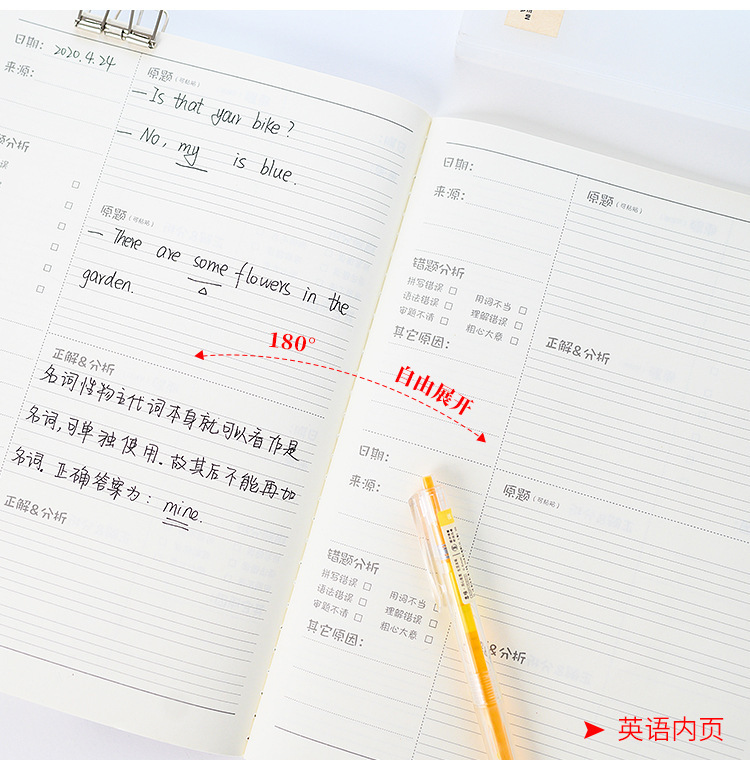 日期: 2020.4.24
来源:
原题(可粘贴)
— Is that your bike?
— No, my is blue.
原题(可粘贴)
— There are some flowers in the
garden.
正解&分析
名词性物主代词本身就可以看作是
名词,可单独使用.故其后不能再加
名词.正确答案为: mine.
正解&分析
180°
自由展开
日期:
来源:
原题(可粘贴)
错题分析
拼写错误 □ 用词不当 □
语法错误 □ 理解错误 □
审题不请 □ 粗心大意 □
其它原因:
正解&分析
日期:
来源:
原题(可粘贴)
错题分析
拼写错误 □ 用词不当
语法错误 □ 理解错误 □
审题不请 □ 粗心大意 □
其它原因:
&分析
➤ 英语内页